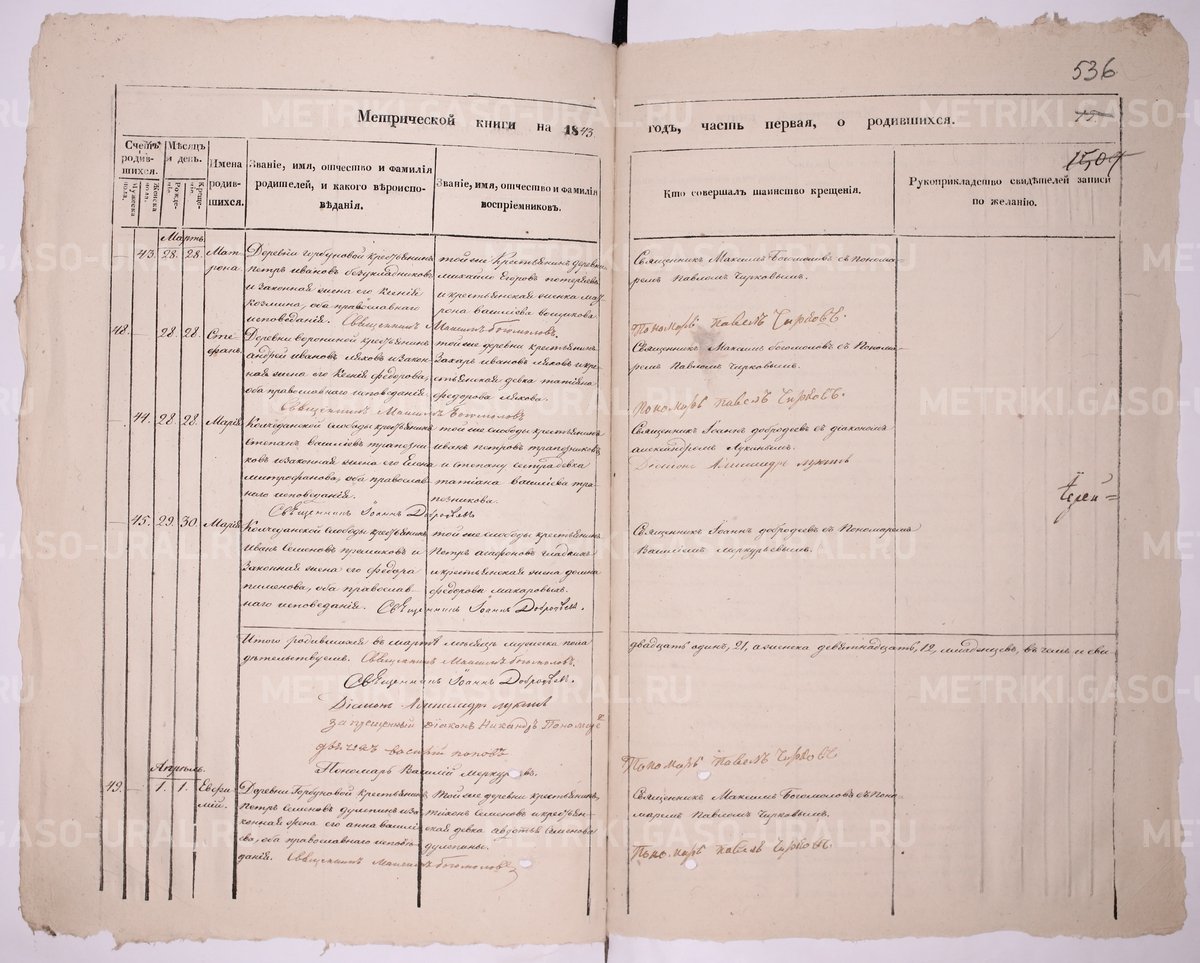 536
Метрической книги на 1843.
годъ, часть первая, о родившихся.
1504
Счетъ родив-
шихся.
Мѣсяцъ
и день.
Мужеска
пола.
Женска
пола.
Рожде-
нія.
Креще-
нія.
Имена
родив-
шихся.
Званіе, имя, отчество и фамилія
родителей, и какого вѣроиспо-
вѣданія.
Званіе, имя, отчество и фамилія
воспріемниковъ.
Кто совершалъ таинство крещенія.
Рукоприкладство свидѣтелей записи
по желанію.
Мартъ
43. 28. 28. Мат-
рона
Деревни Горбуновой крестьянинъ
петръ ивановъ
и законная жена его Ксенія
козмина, оба православнаго
исповеданія. Священникъ Максимъ Богомоловъ.
той же крестьянинъ деревни
михайло Егоровъ
и крестьянская женка мат-
рона васильева
Священникъ Максимъ Богомоловъ съ понома-
ремъ Павломъ Чирковымъ.
Пономарь павелъ Чирковъ.
48. 28. 28. Сте-
фанъ.
Деревни ворониной крестьянинъ
андрей ивановъ ляховъ и закон-
ная жена его Ксенія федорова,
оба православнаго исповеданія.
Священникъ Максимъ Богомоловъ
той же деревни крестьянинъ
Захаръ ивановъ ляховъ и кре-
стьянская девка татіяна
федорова ляхова.
Священникъ Максимъ богомоловъ съ Понома-
ремъ Павломъ Чирковымъ.
Пономарь павелъ Чирковъ.
44. 28. 28. Марія
Колчеданской слободы крестьянинъ
степанъ василіевъ трапезни-
ковъ и законная жена его Елена
митрофанова, оба православ-
наго исповеданія.
Священникъ Іоаннъ Добродѣевъ
той же слободы крестьянинъ
иванъ петровъ трапезниковъ
и степану сестра девка
татіана василіева тра-
пезникова.
Священникъ Іоаннъ добродеевъ съ діакономъ
александромъ Лукинымъ.
Діаконъ Александръ лукинъ
45. 29. 30. Марія
Колчеданской слободы крестьянинъ
Иванъ Семеновъ прямиковъ и
Законная жена его федора
пименова, оба православ-
наго исповеданія. Священникъ Іоаннъ Добродѣевъ.
той же слободы крестьянинъ
Петръ агафоновъ
и крестьянская жена домна
федорова макаровыхъ.
Священникъ Іоаннъ добродеевъ съ Пономаремъ
Василіемъ Меркурьевымъ.
Итого родившихся въ мартѣ месяцѣ мужеска пола
двадцать одинъ, 21, а женска девятнадцать, 19, младенцевъ, въ чемъ и сви-
дѣтельствуемъ. Священникъ Максимъ богомоловъ.
Священникъ Іоаннъ Добродѣевъ.
Діаконъ Александръ лукинъ
запрещенный діаконъ Никандръ Пономаре
дьячекъ василій поповъ
Пономарь Василій Меркурьевъ.
Пономарь павелъ Чирковъ
Апрѣль.
49. 1. 1. Евфи-
мій.
Деревни Горбуновой крестьянинъ
петръ Семеновъ и за-
конная жена его анна василі-
ева, оба православнаго испове-
данія. Священникъ Максимъ богомоловъ
той же деревни крестьянинъ
тихонъ семеновъ и крестьян-
ская девка авдотья Семенова
Священникъ Максимъ Богомоловъ съ Поно-
маремъ Павломъ Чирковымъ.
Пономарь павелъ Чирковъ.
METRIKI.GASO-URAL.RU